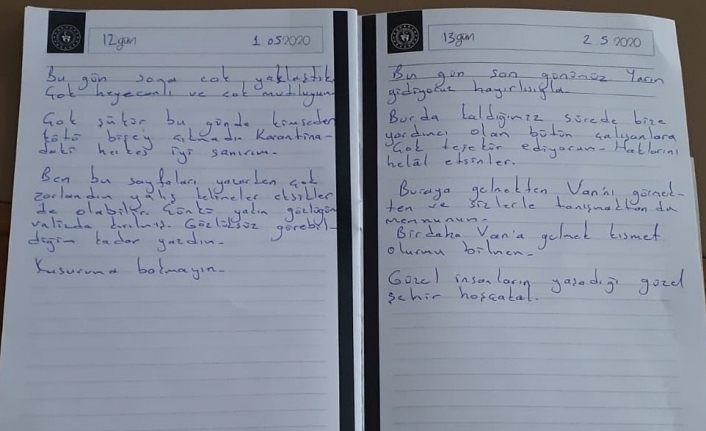 12 gün 1 05 2020
Bu gün sona çok yaklaştık
Çok heyecanlı ve çok mutluyum
Çok şükür bu günde kimseden
kötü bişey çıkmadı Karantina-
daki herkes iyi sanırım.
Ben bu sayfaları yazarken çok
zorlandım yalış kelimeler eksikler
de olabilir. Çünkü yakın gözlüğüm
valizda kırılmış. Gözlüksüz görebil-
diğim kadar yazdım.
Kusuruma bakmayın.
13 gün 2 5 2020
Bu gün son günümüz Yarın
gidiyoruz hayırlısıyla.
Burda kaldığımız sürede bize
yardımcı olan bütün çalışanlara
Çok teşekür ediyorum. Haklarını
helâl etsinler.
Buraya gelmekten Van'ı görmek-
ten ve sizlerle tanışmaktan da
memnunum.
Birdaha Van'a gelmek kısmet
olurmu bilmem.
Güzel insanların yaşadığı güzel
şehir hoşçakal.